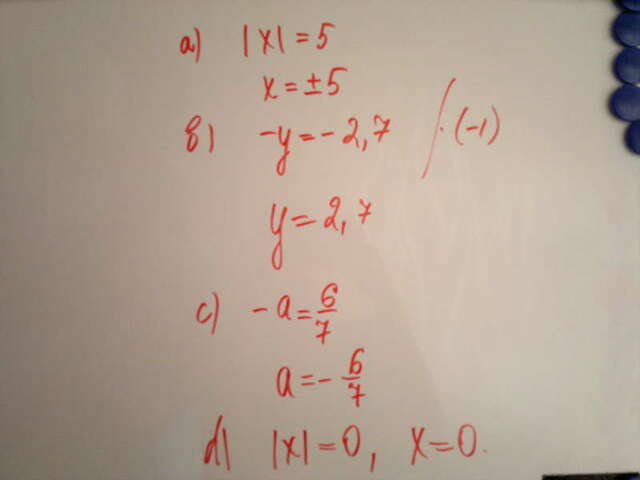 a) |x| = 5
x = ±5
в) -y = -2,7 /·(-1)
y = 2,7
c) -a = 6/7
a = -6/7
d) |x| = 0, x = 0.